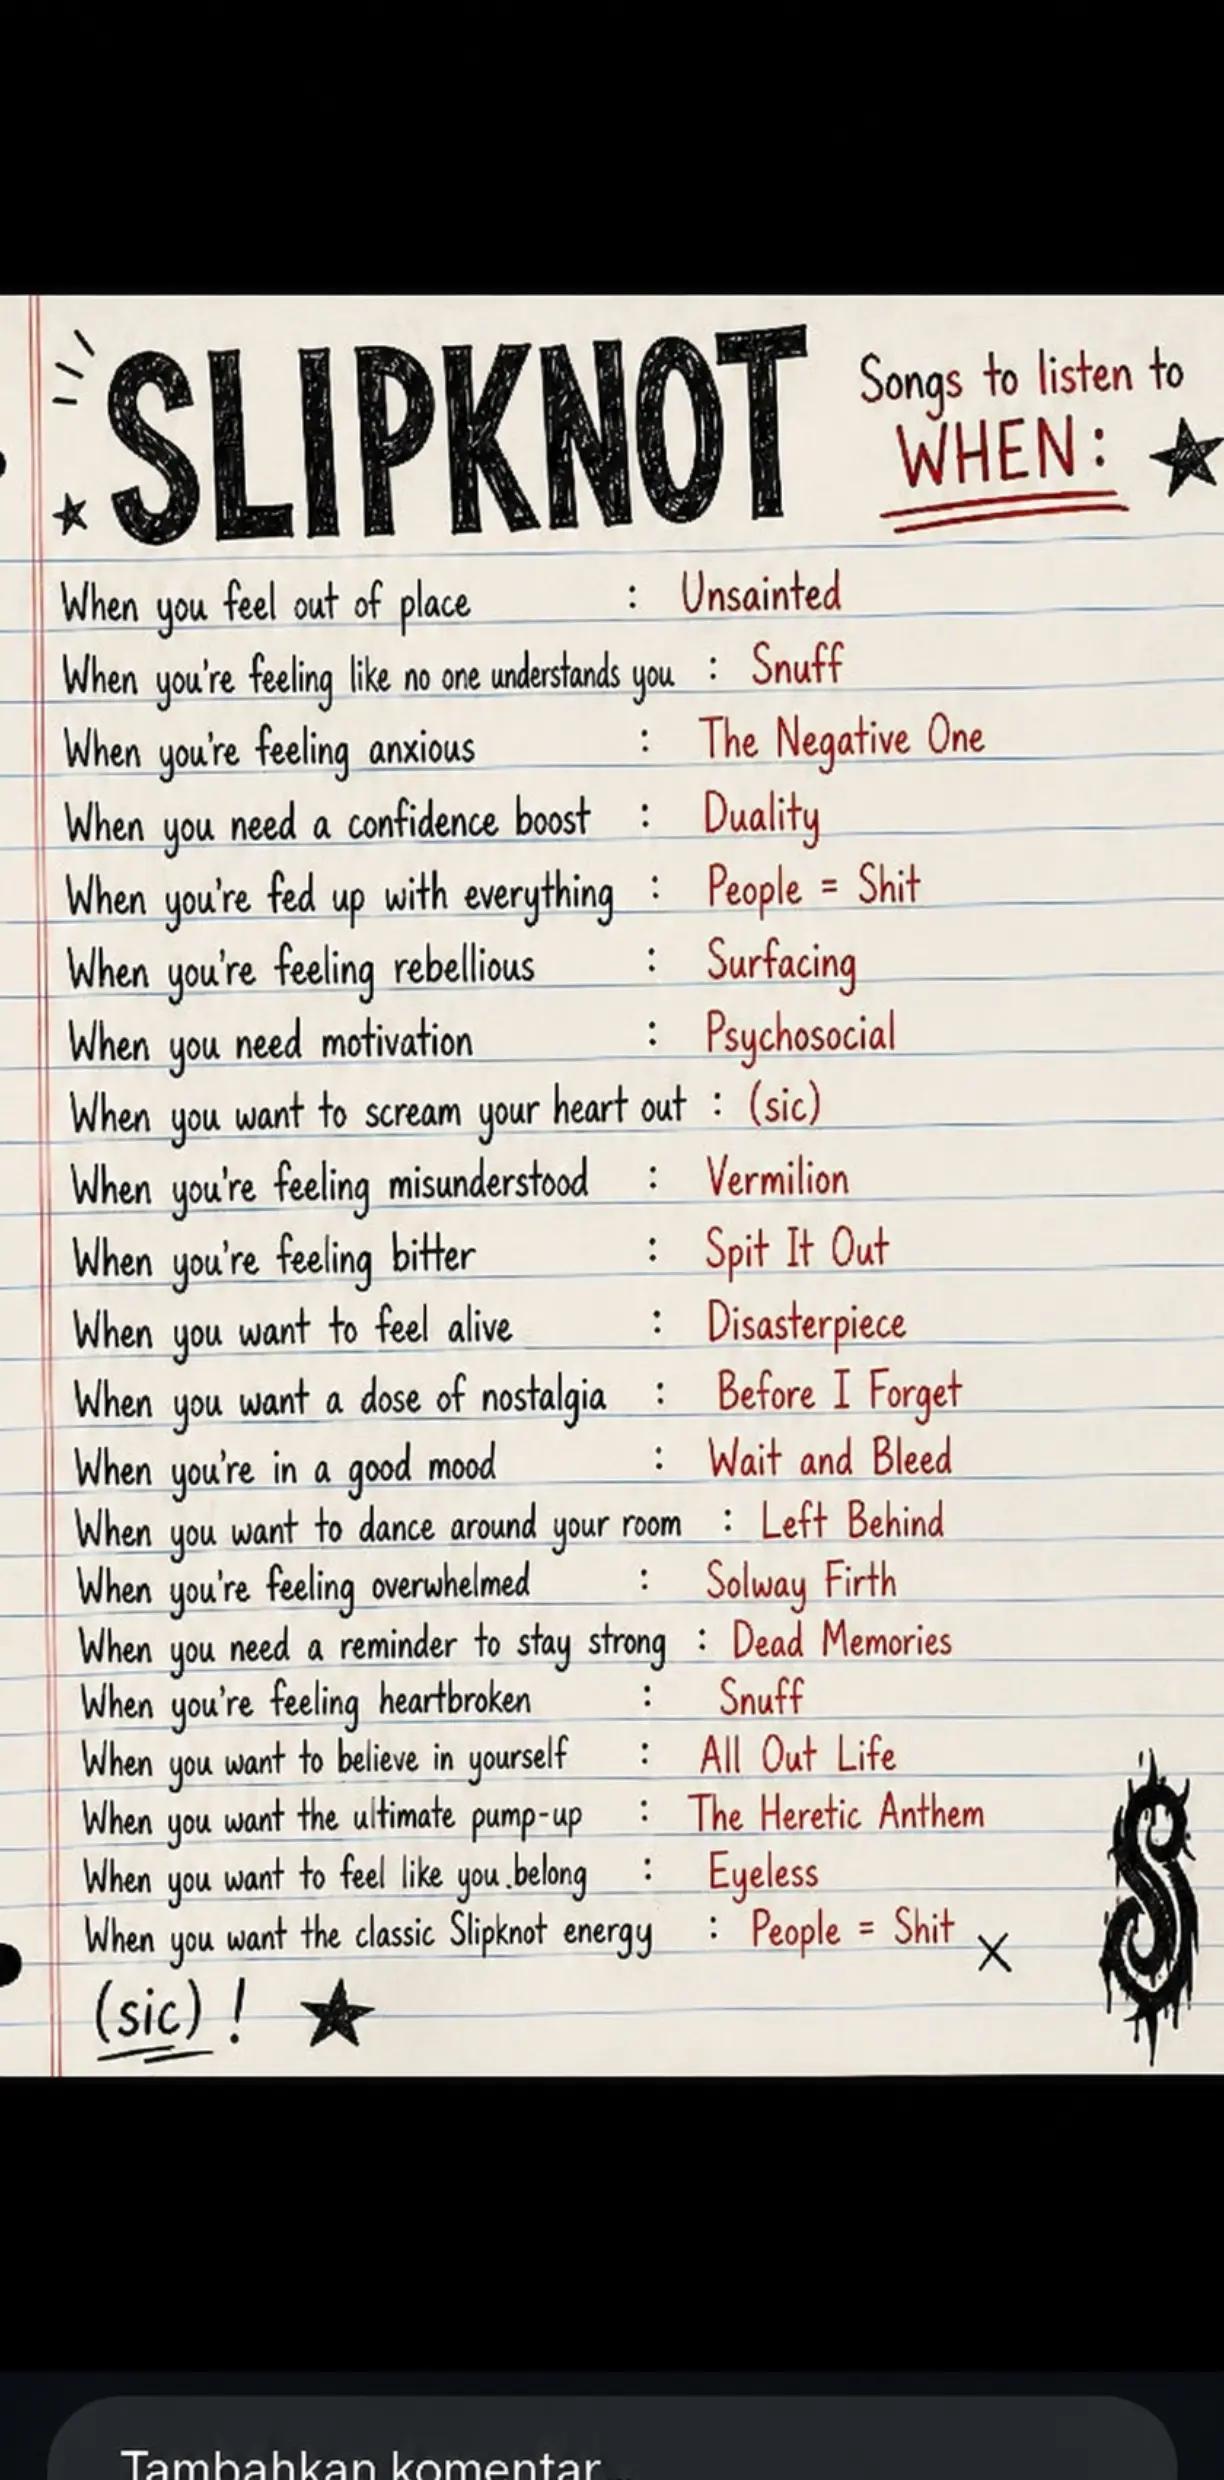 SLIPKNOT
Songs to listen to
WHEN:
When you feel out of place : Unsainted
When you're feeling like no one understands you : Snuff
When you're feeling anxious : The Negative One
When you need a confidence boost : Duality
When you're fed up with everything : People = Shit
When you're feeling rebellious : Surfacing
When you need motivation : Psychosocial
When you want to scream your heart out : (sic)
When you're feeling misunderstood : Vermilion
When you're feeling bitter : Spit It Out
When you want to feel alive : Disasterpiece
When you want a dose of nostalgia : Before I Forget
When you're in a good mood : Wait and Bleed
When you want to dance around your room : Left Behind
When you're feeling overwhelmed : Solway Firth
When you need a reminder to stay strong : Dead Memories
When you're feeling heartbroken : Snuff
When you want to believe in yourself : All Out Life
When you want the ultimate pump-up : The Heretic Anthem
When you want to feel like you.belong : Eyeless
When you want the classic Slipknot energy : People = Shit X
(sic) !
S
Tambahkan komentar...